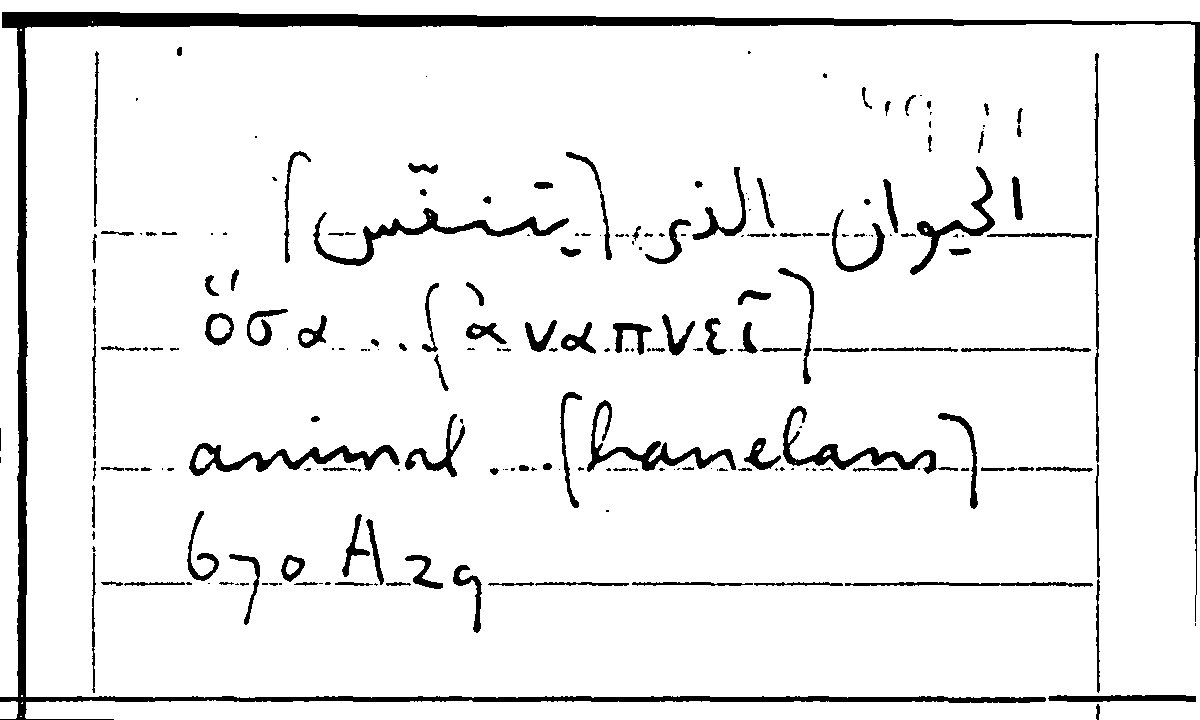 الحيوان الذى [يَتنفّس]
ὅσα ... [ἀναπνεῖ]
animal ... [hanelans]
670 A 29